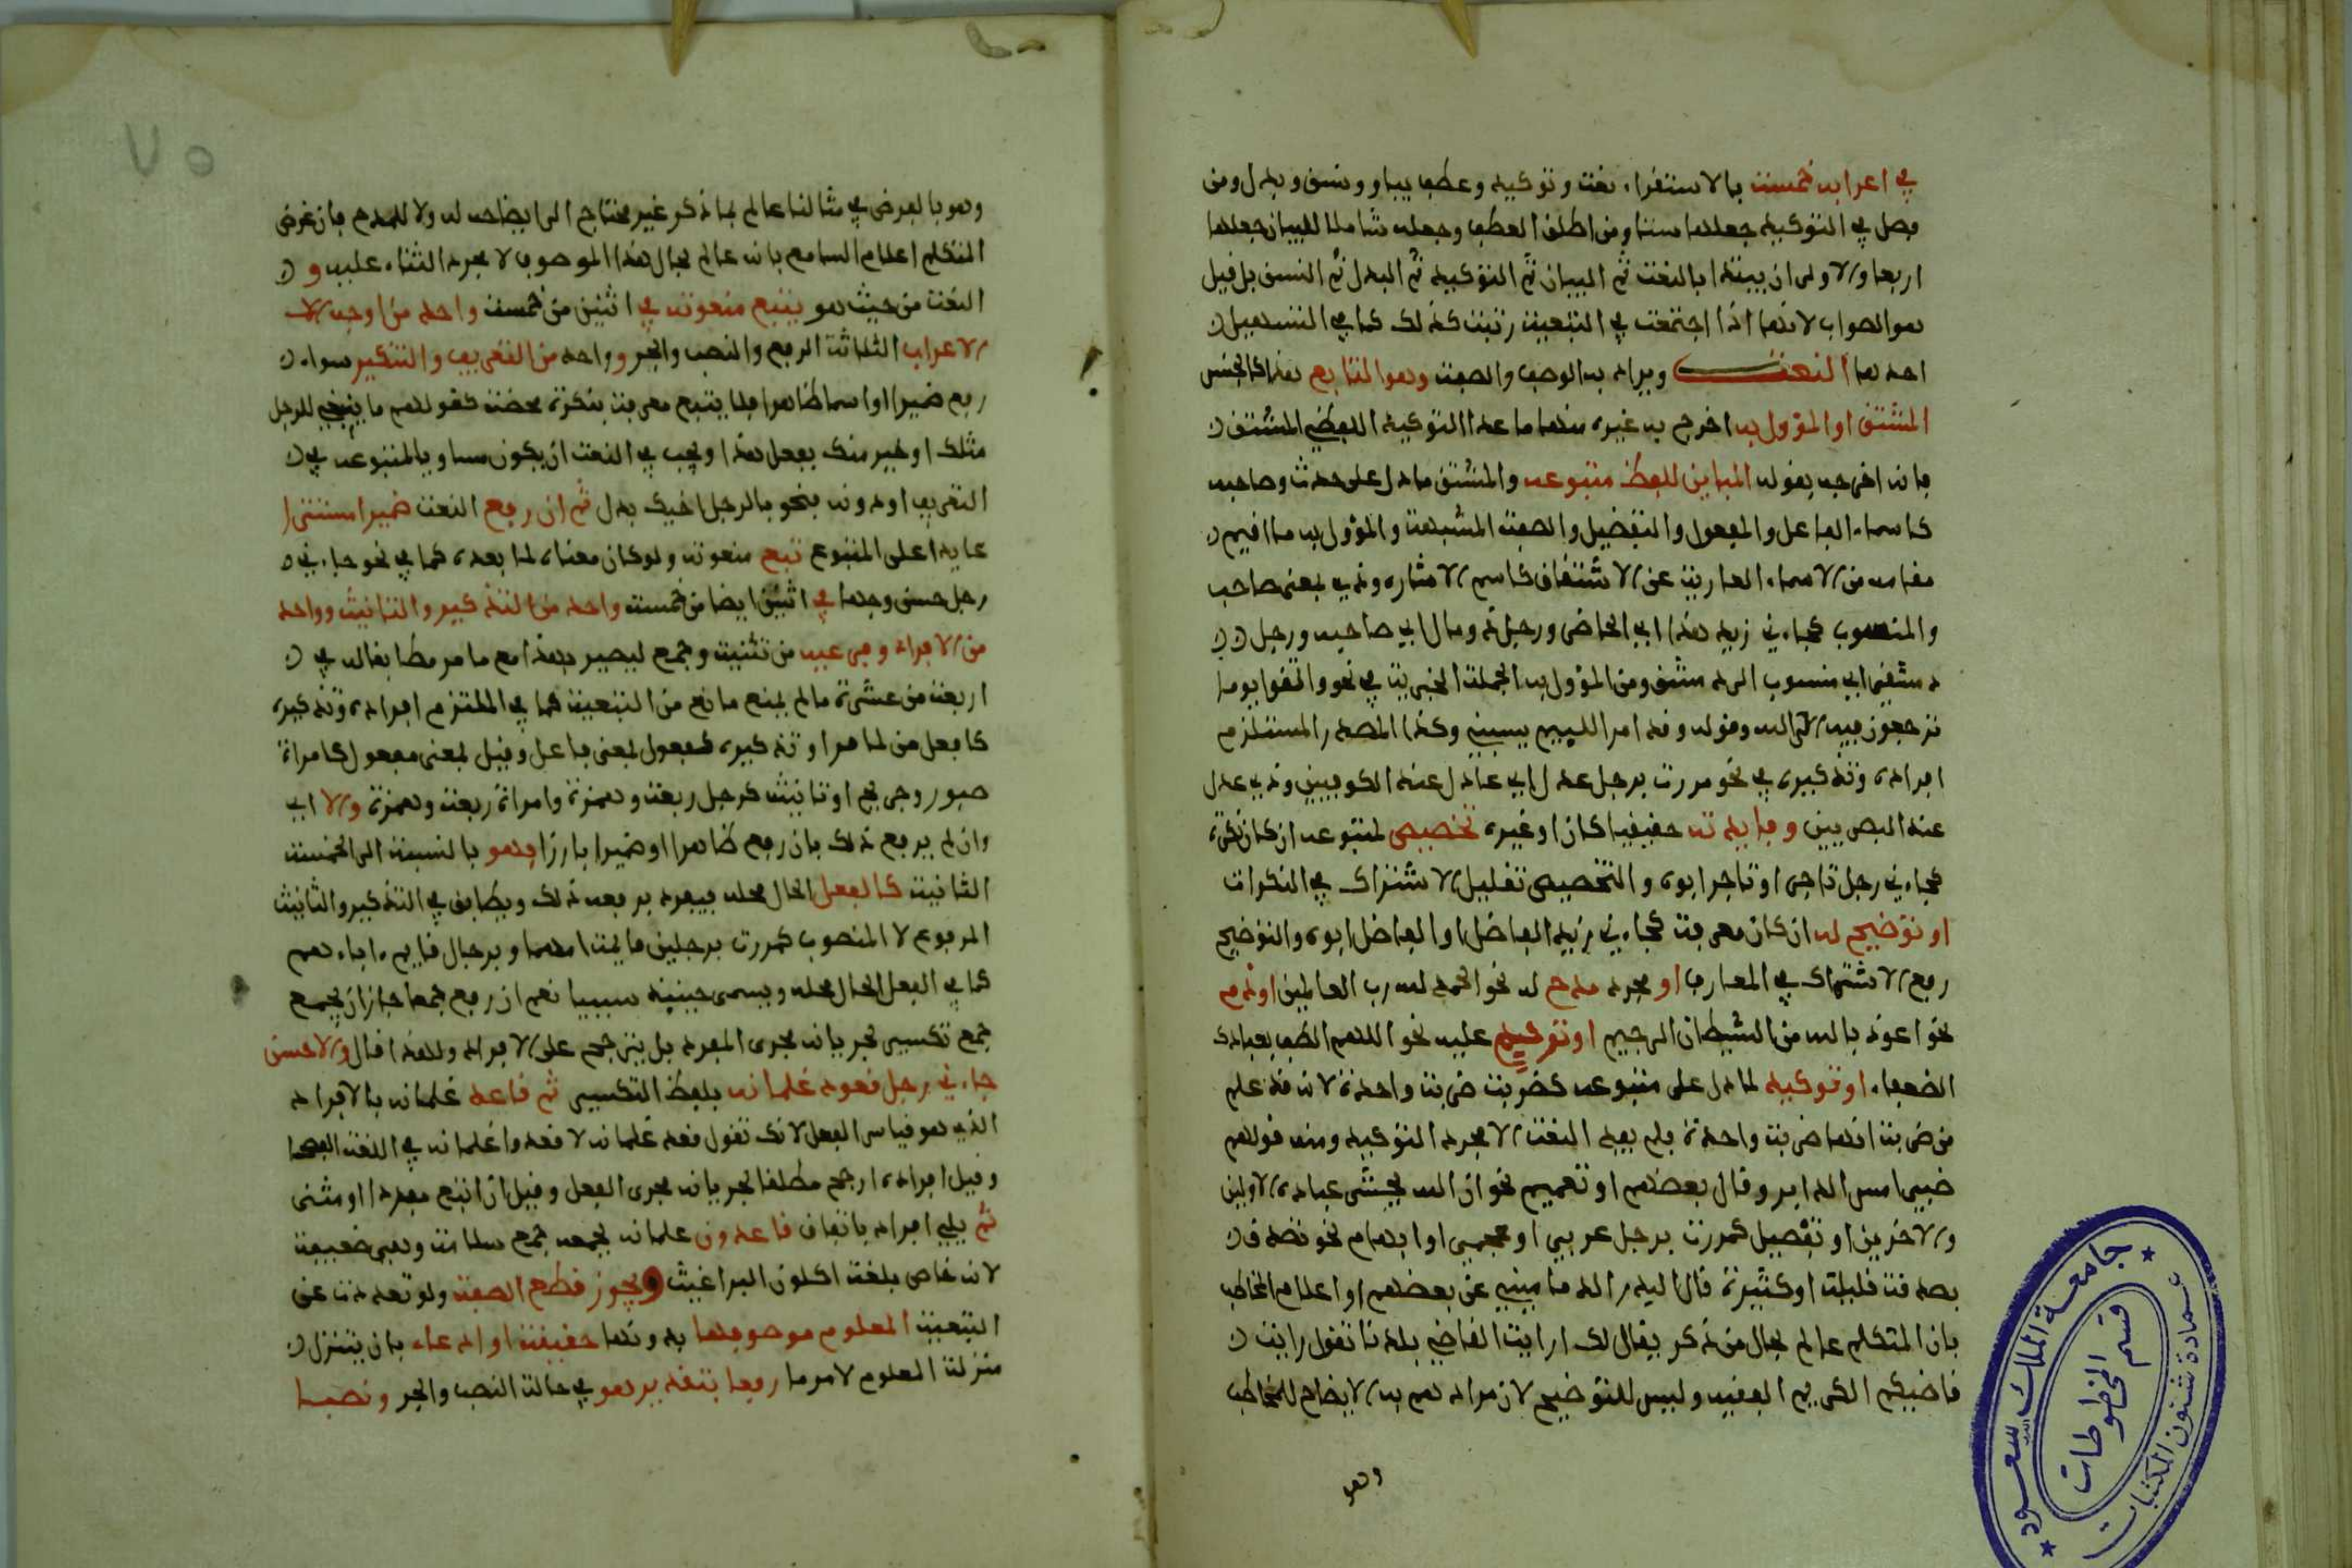 في اعرابه خمسة بالاستقراء نعت وتوكيد وعطف بيان ونسق وبدل ومن
فصل في التوكيد جعلها ستا ومن اطلق العطف وجعله شاملا للبيان جعلها
اربعا والاولى ان يبتدا بالنعت ثم البيان ثم التوكيد ثم البدل ثم النسق بل قيل
هو الصواب لانها اذا اجتمعت في التبعية رتبت كذلك كما في التسهيل
احدها النعت ويرادبه الوصف والصفة وهو التابع هذا كالجنس
المشتق او المؤول به اخرج به غيره منها ما عدا التوكيد اللفظي المشتق
فانه اخرجه بقوله المباين للفظ متبوعه والمشتق ما دل على حدث وصاحبه
كاسماء الفاعل والمفعول والتفضيل والصفة المشبهة والمؤول به ما اقيم
مقامه من الاسماء العارية عن الاشتقاق كاسم الاشارة وذي بمعنى صاحب
والمنسوب كجاءني زيد هذا اي الحاضر ورجل ذو مال اي صاحبه ورجل
دمشقي اي منسوب الى دمشق ومن المؤول به الجملة الخبرية في نحو واتقوا يوما
ترجعون فيه الى الله وقوله ولقد امر على اللييم يسبني وكذا المصدر المستلزم
افراده وتذكيره في نحو مررت برجل عدل اي عادل عند الكوفيين وذي عدل
عند البصريين وفايدته حقيقيا كان او غيره تخصيص لمتبوعه ان كان نكرة
كجاءني رجل تاجر او تاجر ابوه والتخصيص تقليل الاشتراك في النكرات
او توضيح له ان كان معرفة كجاءني زيد الفاضل او الفاضل ابوه والتوضيح
رفع الاشتراك في المعارف او مجرد مدح له نحو الحمد لله رب العالمين او ذم
نحو اعوذ بالله من الشيطان الرجيم او ترحم عليه نحو اللهم الطف بعبادك
الضعفاء او توكيد لما دل على متبوعه كضربت ضربة واحدة لانه قد علم
من ضربة انها ضربة واحدة فلم يفد النعت الا مجرد التوكيد ومنه قولهم
امس الدابر وقال بعضهم او تعميم نحو ان الله يحشر عباده الاولين
والاخرين او تفصيل كمررت برجل عربي او عجمي او ابهام نحو تصدق
بصدقة قليلة او كثيرة قال عن بعضهم او اعلام المخاطب
بان المتكلم عالم بحال من ذكر يقال لك ارايت القاضي بلدنا تقول رايت
قاضيكم الكريم الفقيه وليس للتوضيح لان مراد هم به الايضاح للمخاطب
وهو
٧٥
وهو بالفرض في مثالنا عالم بما ذكر غير محتاج الى ايضاحه له ولا للمدح فان غرض
المتكلم اعلام السامع بانه عالم بحال هذا الموصوف لا مجرد الثناء عليه و
النعت من حيث هو يتبع منعوته في اثنين من خمسة واحد من اوجه
الاعراب الثلاثة الرفع والنصب والجر وواحد من التعريف والتنكير سواء
رفع ضميرا او اسما ظاهرا فلا يتبع معرفة بنكرة محضة كقولهم ما ينبغي للرجل
مثلك او خير منك يفعل هذا ويجب في النعت ان يكون مساويا لمتبوعه في
التعريف او دونه فنحو بالرجل اخيك بدل ثم ان رفع النعت ضميرا مستترا
عايدا على المتبوع تبع منعوته ولو كان معناه لما بعده كما في نحو جاءني
رجل حسن وجها في اثنين ايضا من خمسة واحد من التذكير والتانيث وواحد
من الافراد وفرعيه من تثنية وجمع ليصير بهذا مع ما مر مطابقا له في
اربعة من عشرة ما لم يمنع مانع من التبعية كما في الملتزم افراده وتذكيره
كافعل من لما مر او تذكيره كفعول بمعنى فاعل وفعيل بمعنى مفعول كامراة
صبور وجريح او تانيثه كرجل ربعة وهمزة وامراة ربعة وهمزة والا اي
وان لم يرفع ذلك بان رفع ظاهرا او ضميرا بارزا فهو بالنسبة الى الخمسة
الثانية كالفعل الحال محله فيفرد برفعه ذلك ويطابق في التذكير والتانيث
المرفوع لا المنصوب كمررت برجلين قايمة امهما وبرجال قايم اباءهم
كما في الفعل الحال محله ويسمى حينيذ سببيا نعم ان رفع جمعا جاز ان يجمع
جمع تكسير لجريانه مجرى المفرد بل يترجح على الافراد ولهذا قال والاحسن
جاءني رجل قعود غلمانه بلفظ التكسير ثم قاعد غلمانه بالافراد
الذي هو قياس الفعل لانك تقول قعد غلمانه لا قعدوا غلمانه في اللغة الفصحى
وقيل افراده ارجح مطلقا لجريانه مجرى الفعل وقيل ان اتبع مفردا او مثنى
ثم يلي افراد باتفاق قاعدون غلمانه بجمعه جمع سلامة وهي ضعيفة
لانه خاص بلغة اكلوني البراغيث ويجوز قطع الصفة ولو تعددت عن
التبعية المعلوم موصوفها بدونها حقيقة او ادعاء بان يتنزل
منزلة المعلوم لامر ما رفعا بتقدير هو في حالة النصب والجر ونصبا
جامعة الملك سعود
عمادة شئون المكتبات
قسم المخطوطات